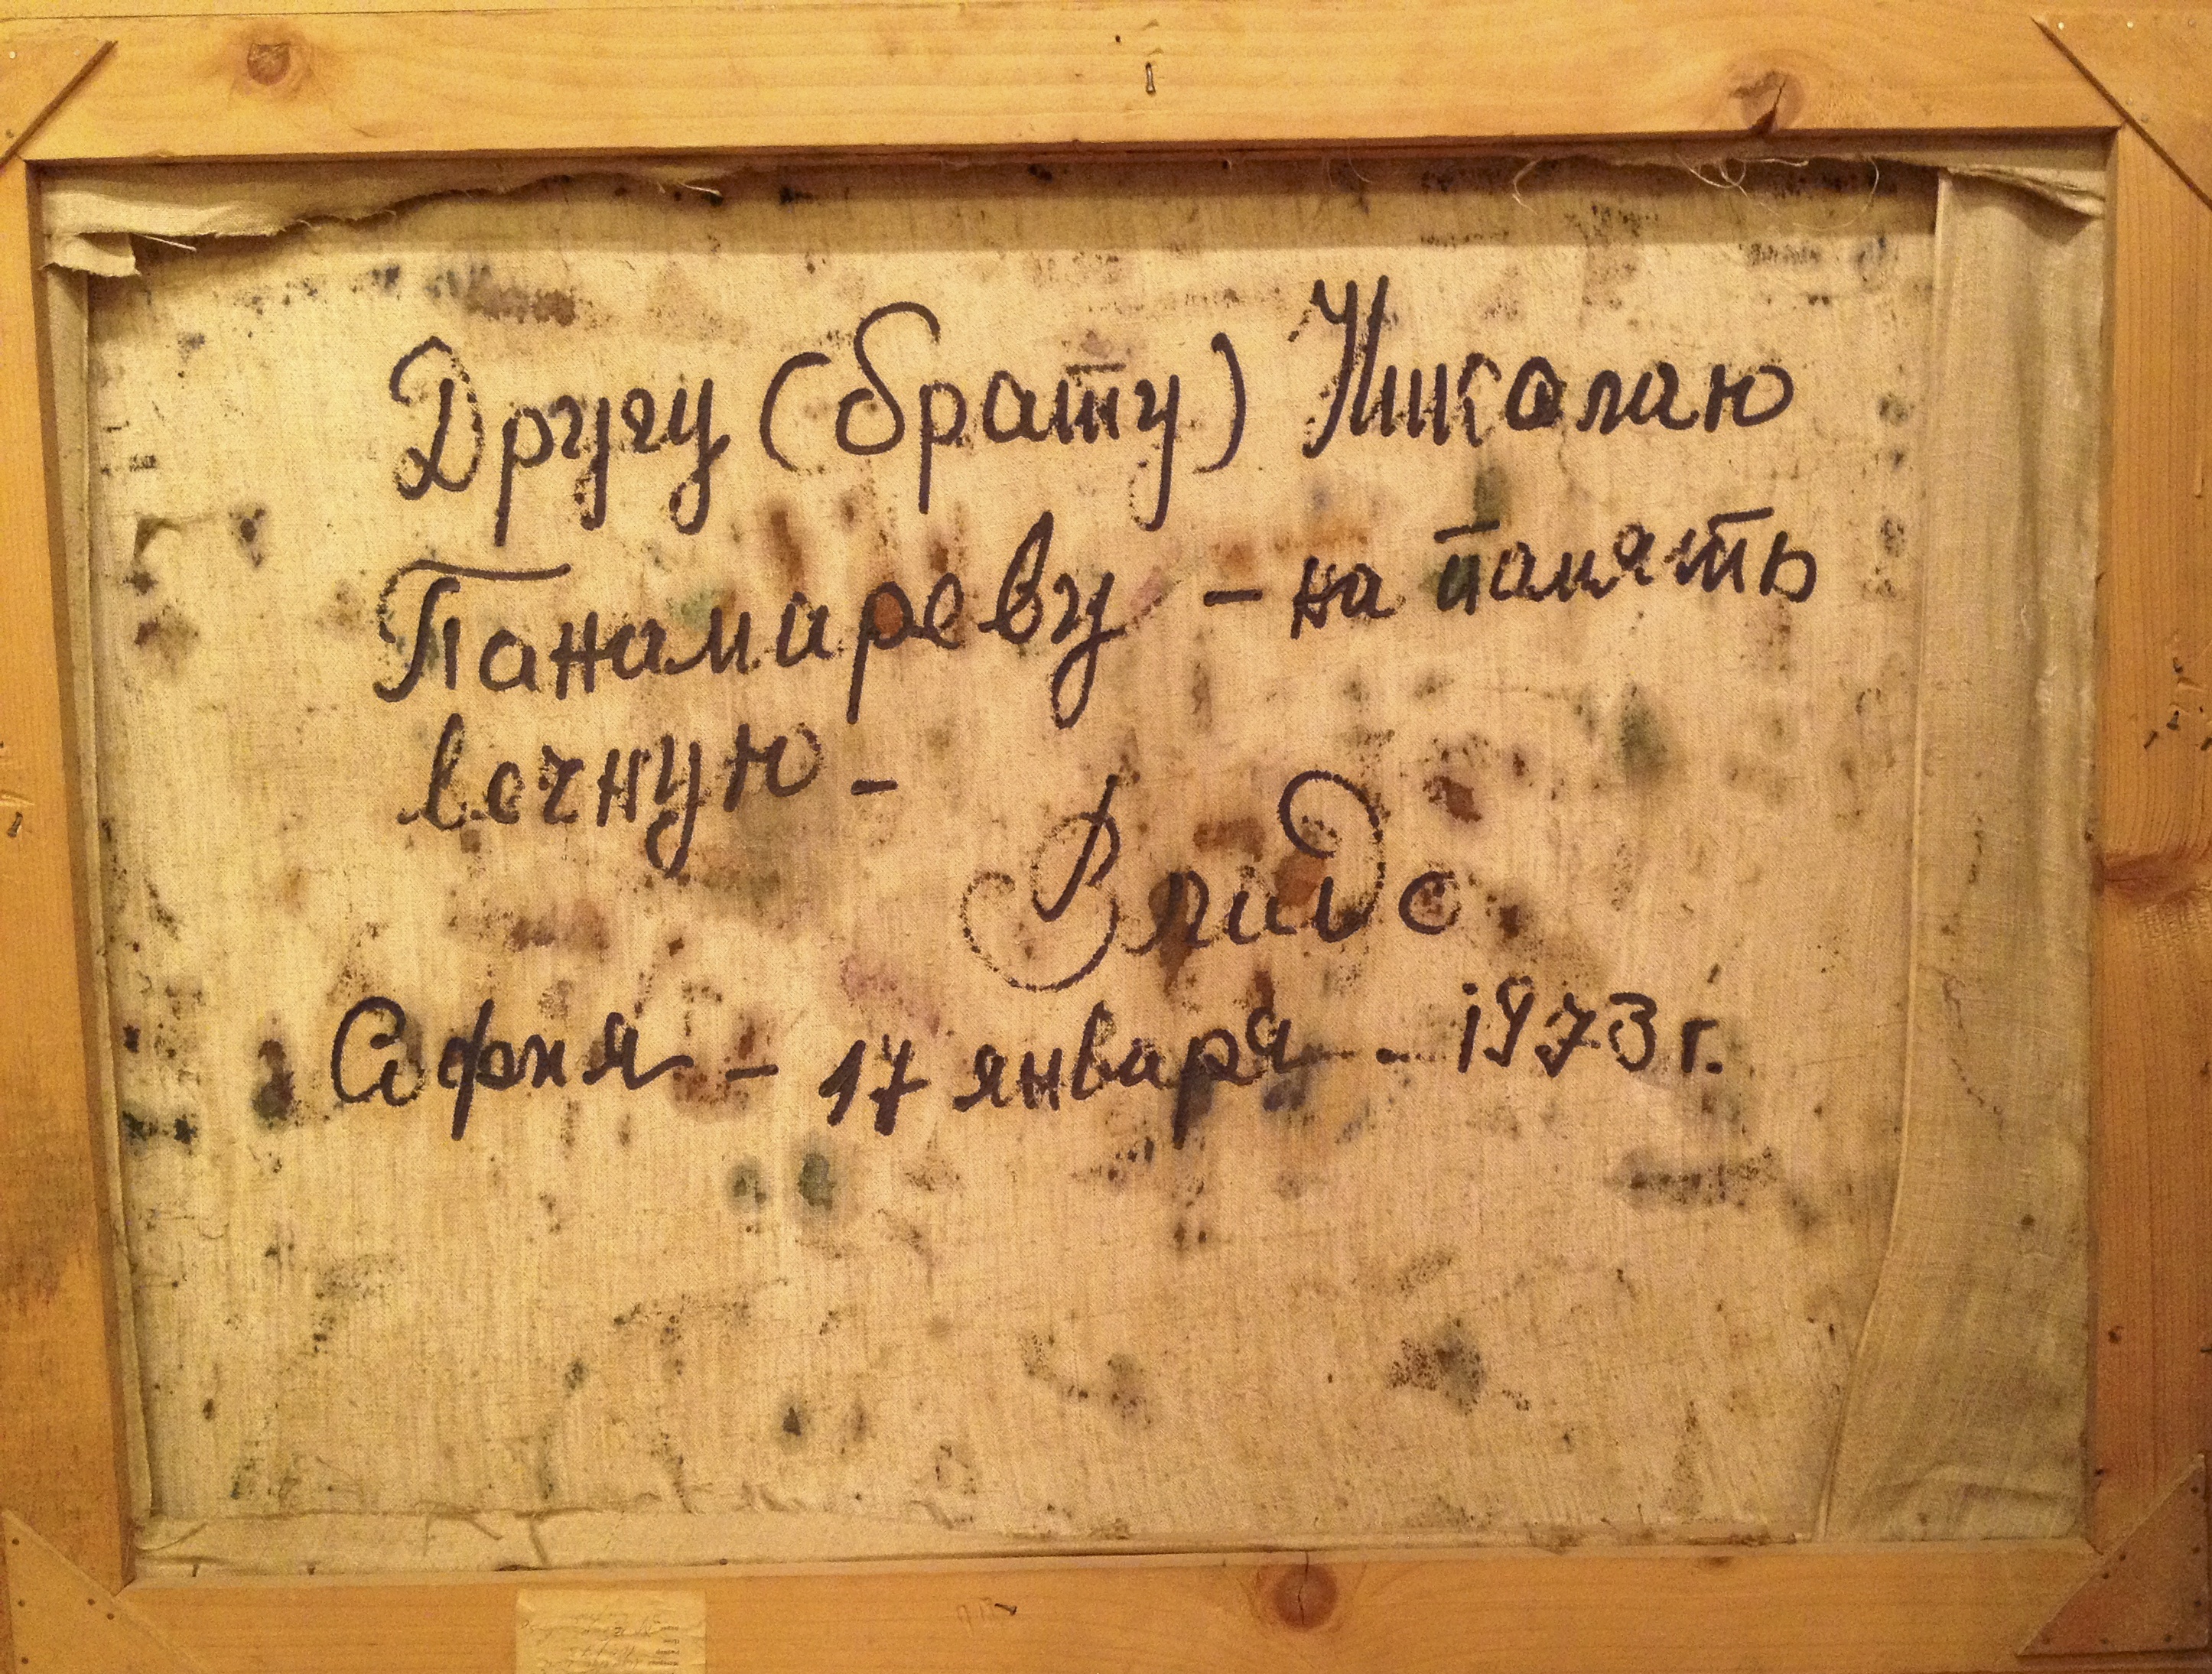 Другу (брату) Николаю
Панамареву – на память
вечную –
София – 17 января – 1973 г.